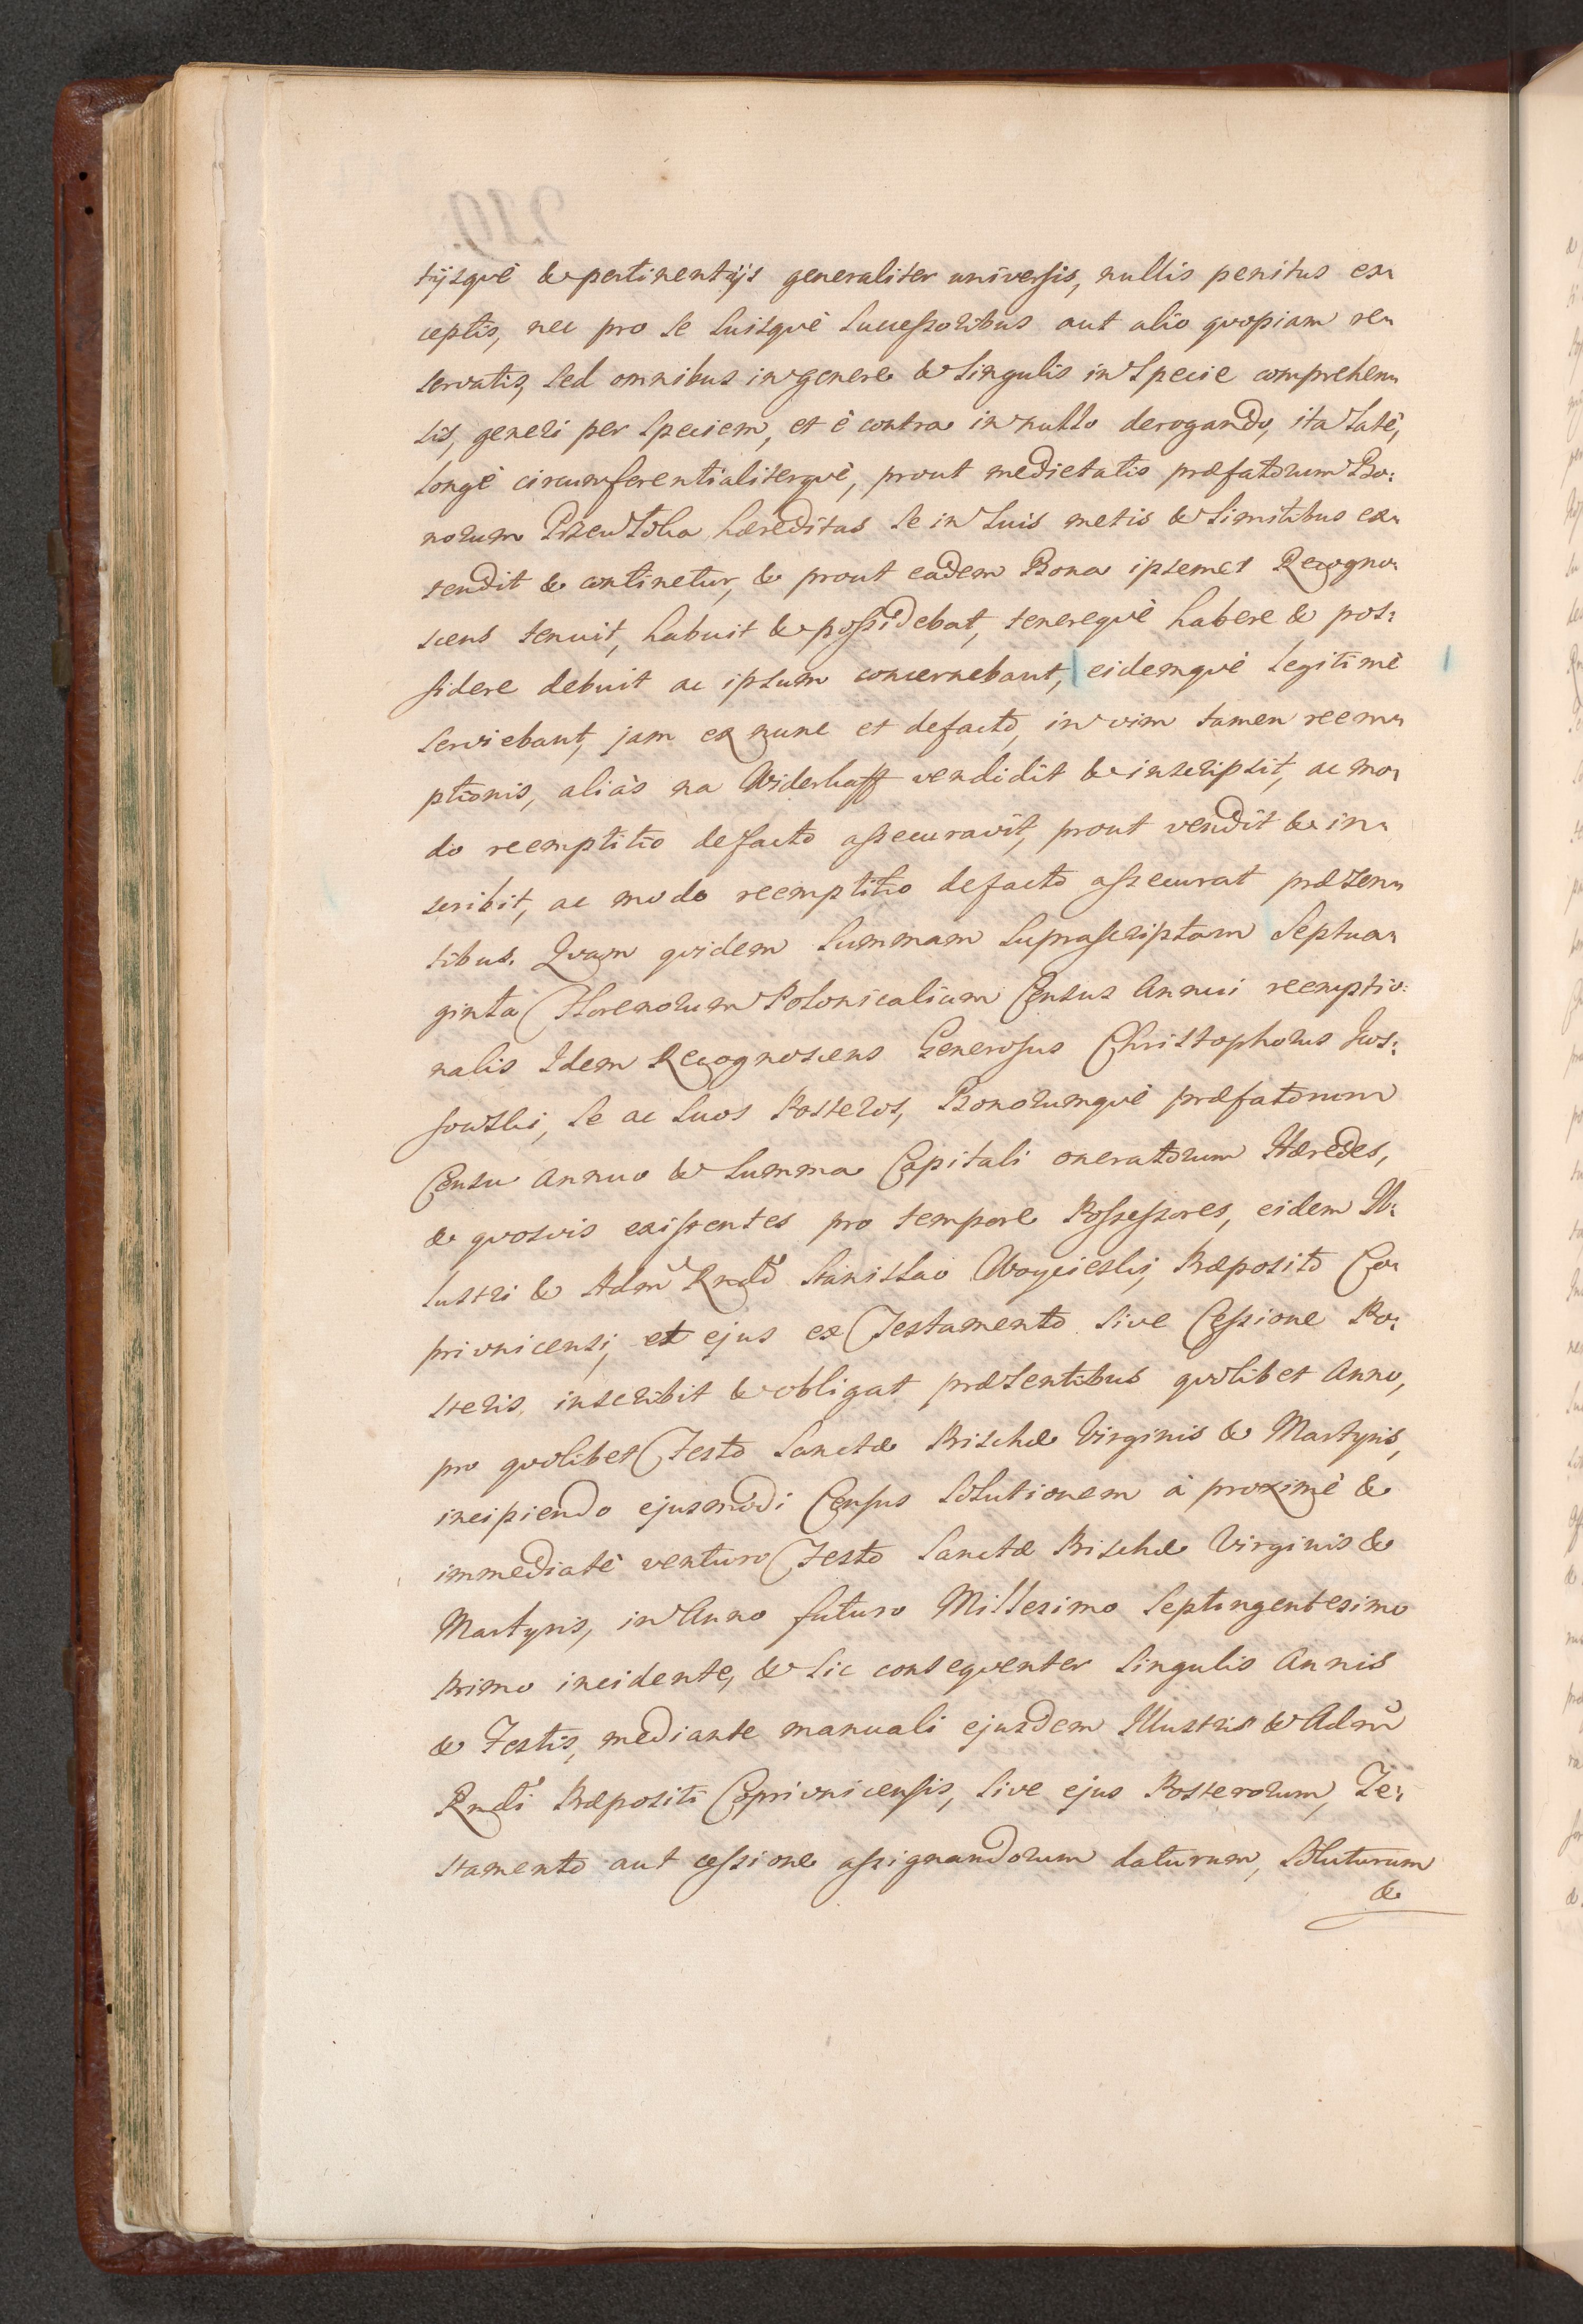 tijsque & pertinentijs generaliter universis, nullis penitus ex„
ceptis, nec pro se suisquè successoribus aut alio quopiam re„
servatis, sed omnibus in genere & singulis in specie comprehen„
sis, generi per speciem, et è contra in nullo derogando, ita latè,
longè circumferentialiterquè, prout medietatis præfatorum Bo:
norum hæreditas se in suis metis & limitibus ex„
tendit & continetur, & prout eadem Bona ipsemet Recogno„
scens tenuit, habuit & possidebat, tenerequè habere & pos:
sidere debuit ac ipsum concernebant, eidemquè legitimè
serviebant, jam ex nunc et de facto, in vim tamen reem„
ptionis, aliàs na Widerkaff vendidit & inscripsit, ac mo„
do reemptitio de facto assecuravit, prout vendit & in„
scribit, ac modo reemptitio de facto assecurat præsen„
tibus. Quam quidem summam suprascriptam Septua„
ginta Florenorum Polonicalium Census Annui reemptio:
nalis Idem Recognoscens Generosus Christophorus Jos:
sowski, se ac suos Posteros, Bonorumquè præfatorum
Censu Annuo & summa Capitali oneratorum Hæredes,
& quosvis existentes pro tempore Possessores, eidem Il:
lustri & Adm Rndo Stanislao Woycieski, Præposito Co„
privnicensi, et ejus ex Testamento sive Cessione Po:
steris inscribit & obligat præsentibus quolibet Anno,
pro quolibet Festo Sanctæ Priscæ Virginis & Martyris,
incipiendo ejusmodi Census solutionem à proximè &
immediatè venturo Festo Sanctæ Priscæ Virginis &
Martyris, in Anno futuro Millesimo Septingentesimo
Primo incidente, & sic consequenter singulis Annis
& Festis, mediante manuali ejusdem Illustris & Adm
Rndi Præpositi Coprivnicensis, sive ejus Posterorum, Te:
stamento aut cessione assignandorum daturum, soluturum
&